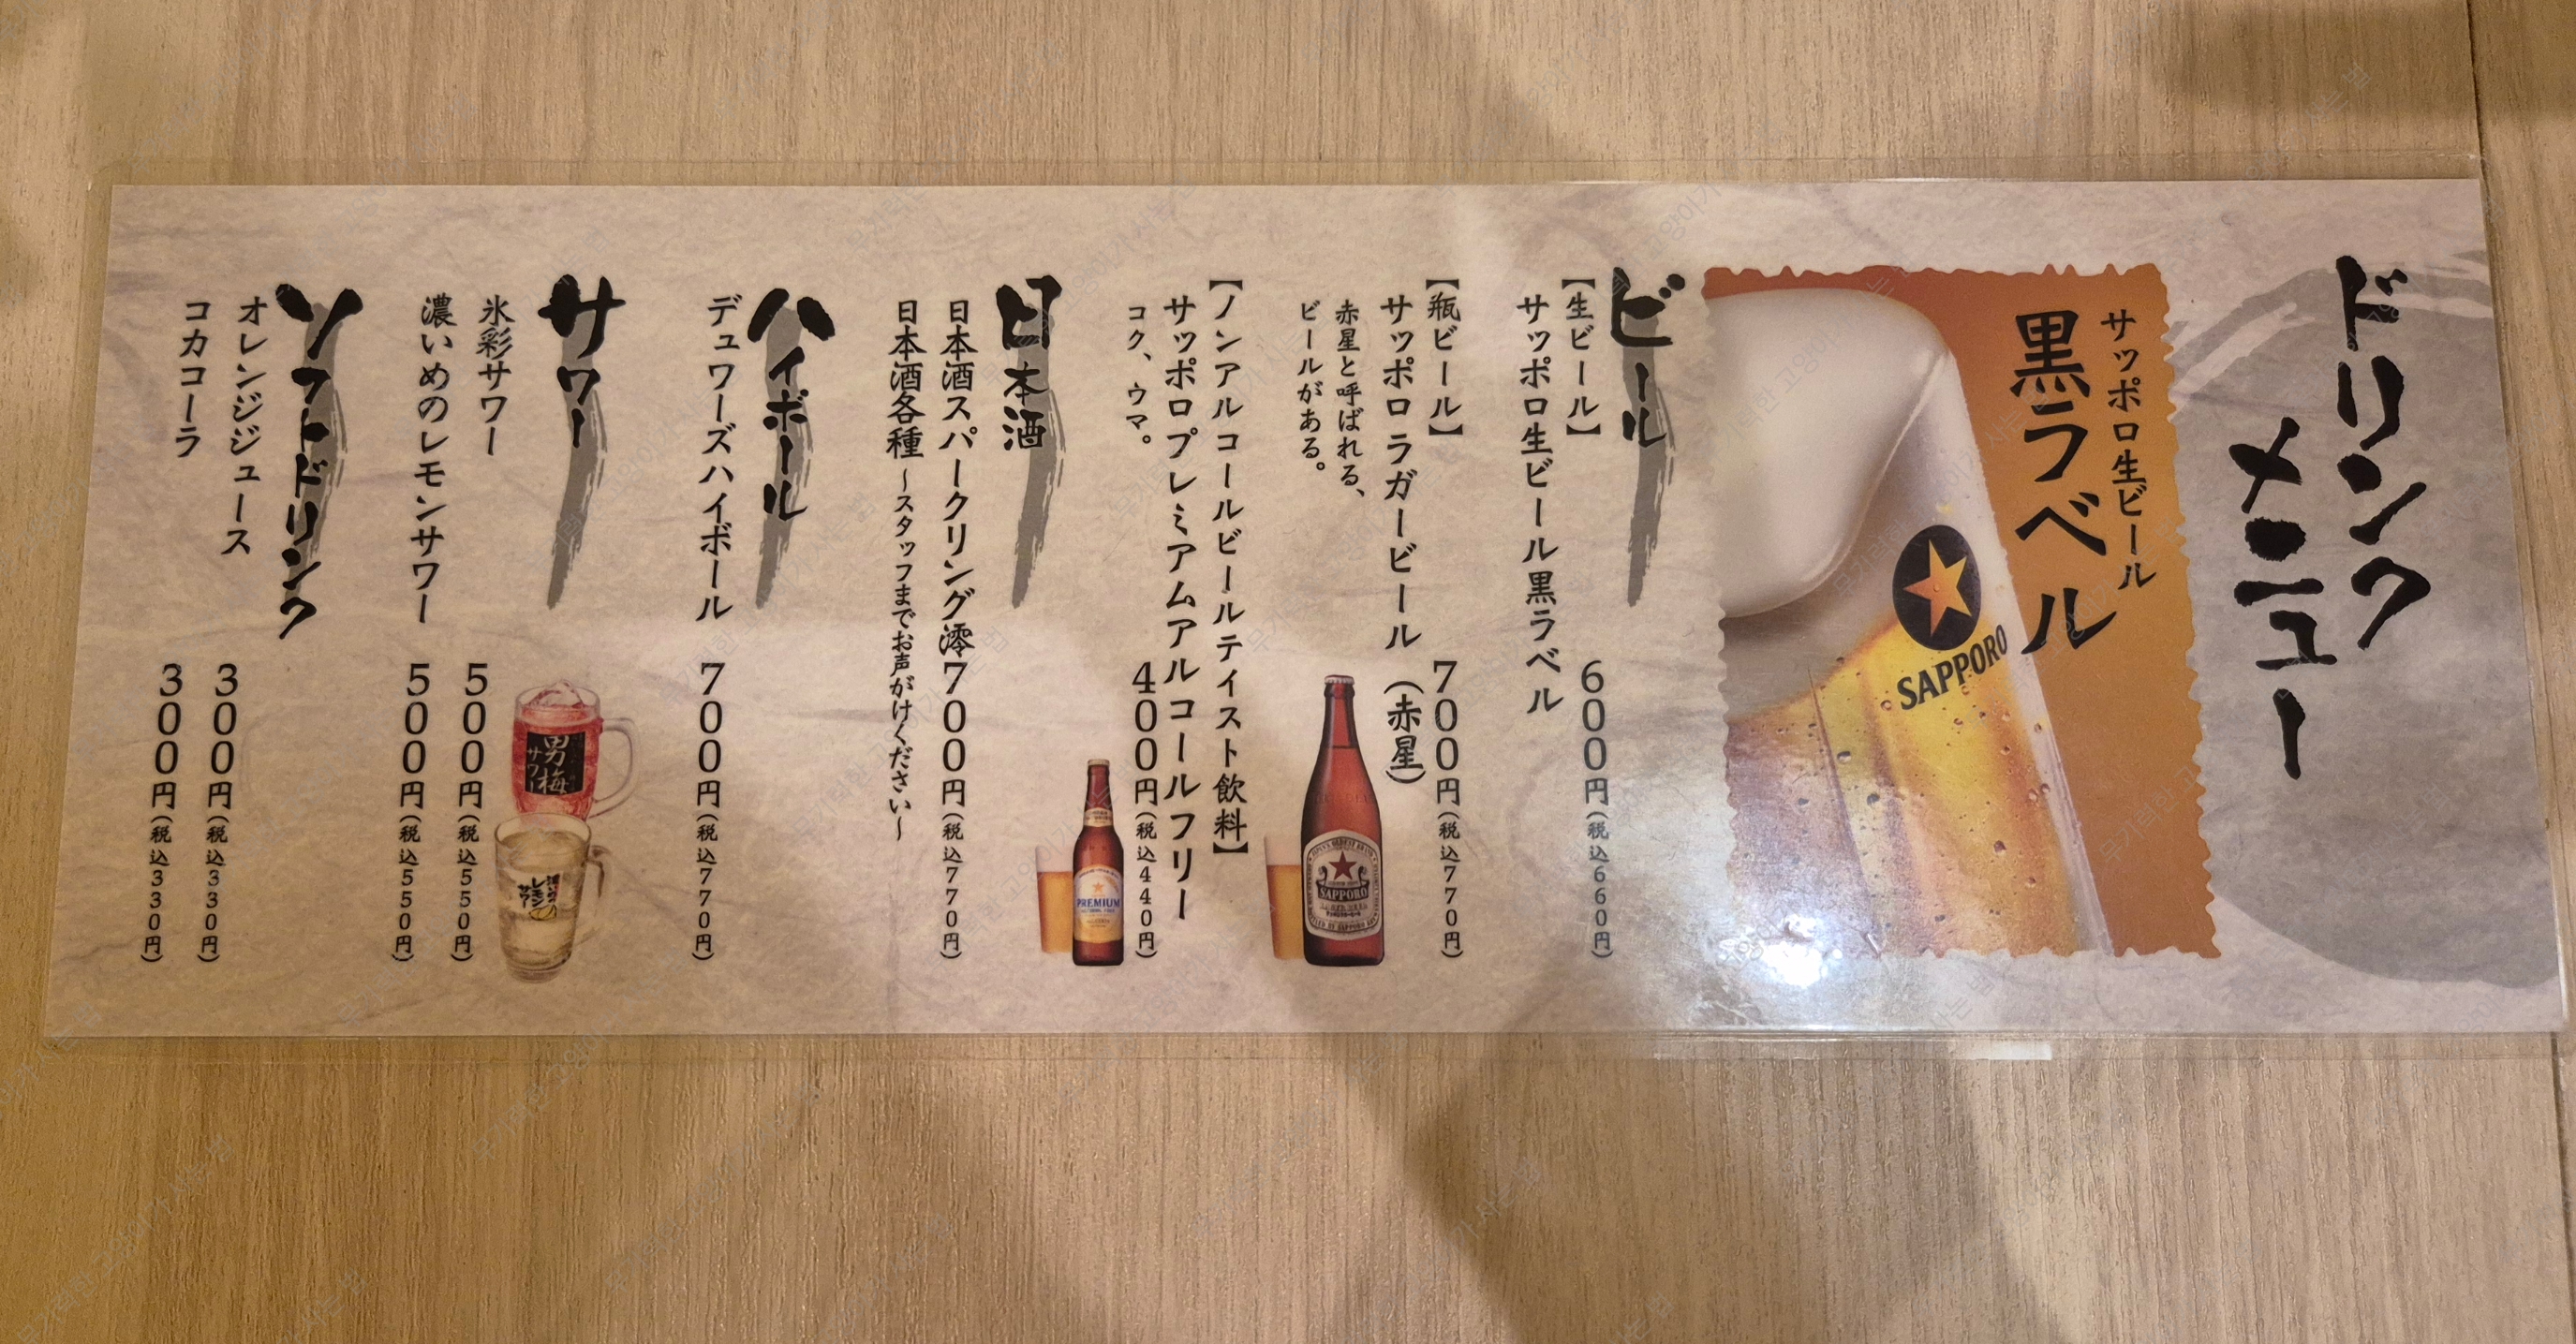 ドリンク
メニュー
サッポロ生ビール
黒ラベル
SAPPORO
ビール
【生ビール】
サッポロ生ビール黒ラベル
600円(税込660円)
【瓶ビール】
サッポロラガービール(赤星)
700円(税込770円)
赤星と呼ばれる、
ビールがある。
SAPPORO
【ノンアルコールビールテイスト飲料】
サッポロプレミアムアルコールフリー
400円(税込440円)
コク、ウマ。
PREMIUM
日本酒
日本酒スパークリング澪 700円(税込770円)
日本酒各種 ~スタッフまでお声がけください~
ハイボール
デュワーズハイボール 700円(税込770円)
サワー
男梅
サワー
氷彩サワー 500円(税込550円)
濃いめのレモンサワー 500円(税込550円)
ソフトドリンク
オレンジジュース 300円(税込330円)
コカコーラ 300円(税込330円)
무기력한 고양이가 사는 법